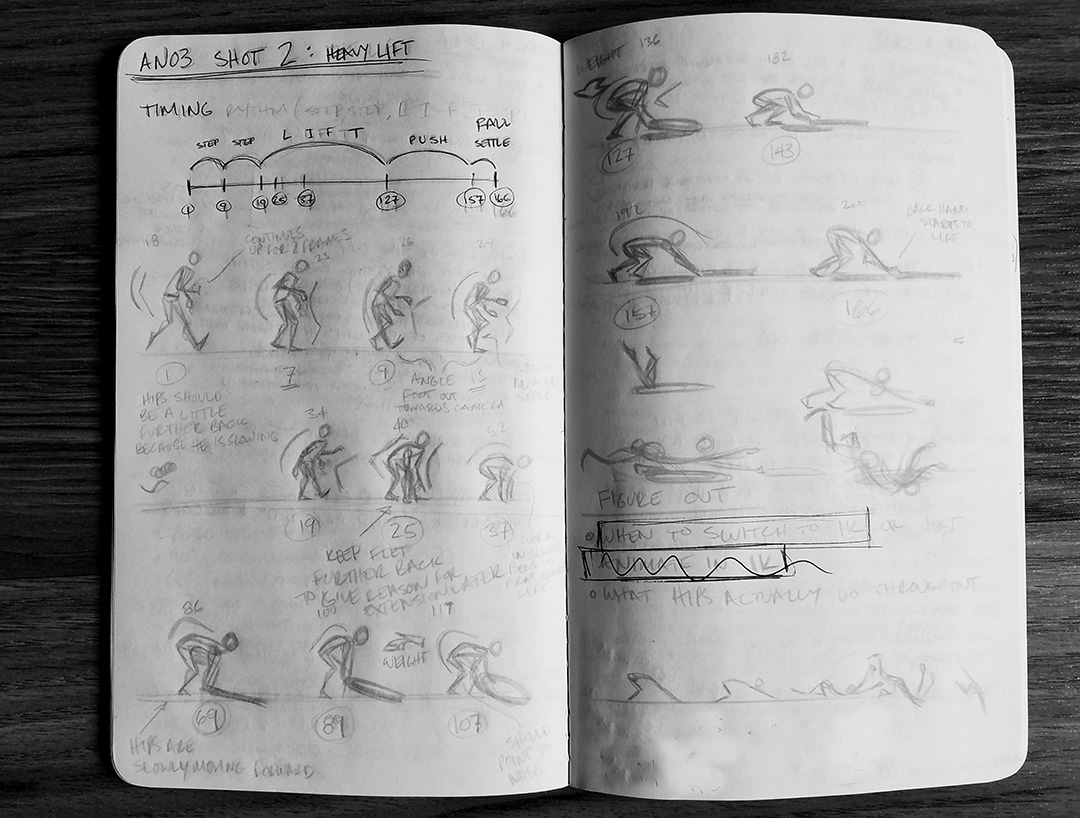 AN03 SHOT 2: HEAVY LIFT
TIMING RHYTHM (STEP STEP, LIFT
STEP STEP L IFF T PUSH FALL
SETTLE
1 9 19 25 37 127 157 166
166
18
CONTINUES
UP FOR 2 FRAMES
25 26 29
1 7 9 13
HIPS SHOULD
BE A LITTLE
FURTHER BACK
BECAUSE HE IS SLOWING
ANGLE
FOOT OUT
TOWARDS CAMERA
SPACE
34 40 52
19 25 37
KEEP FEET
FURTHER BACK
TO GIVE REASON FOR
EXTENSION LATER
86 100 119
WEIGHT
69 89 107
HIPS ARE
SLOWLY MOVING FORWARD
SHOULD
POINT
NOSE
WEIGHT 136 182
127 143
192
BACK HAND
STARTS TO
LIFT
157 166
FIGURE OUT
WHEN TO SWITCH TO IK OR JUST
ANIMATE IN IK
WHAT HIPS ACTUALLY DO THROUGHOUT